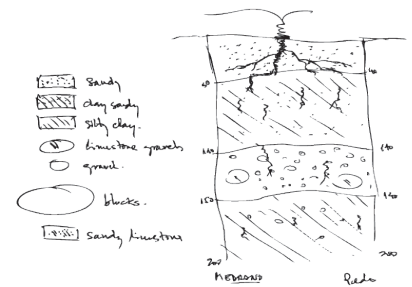 sandy
clay sandy
silty clay.
limestone gravels
gravel.
blocks.
sandy limestone
40
40
110
110
150
200
200
MEDRANO